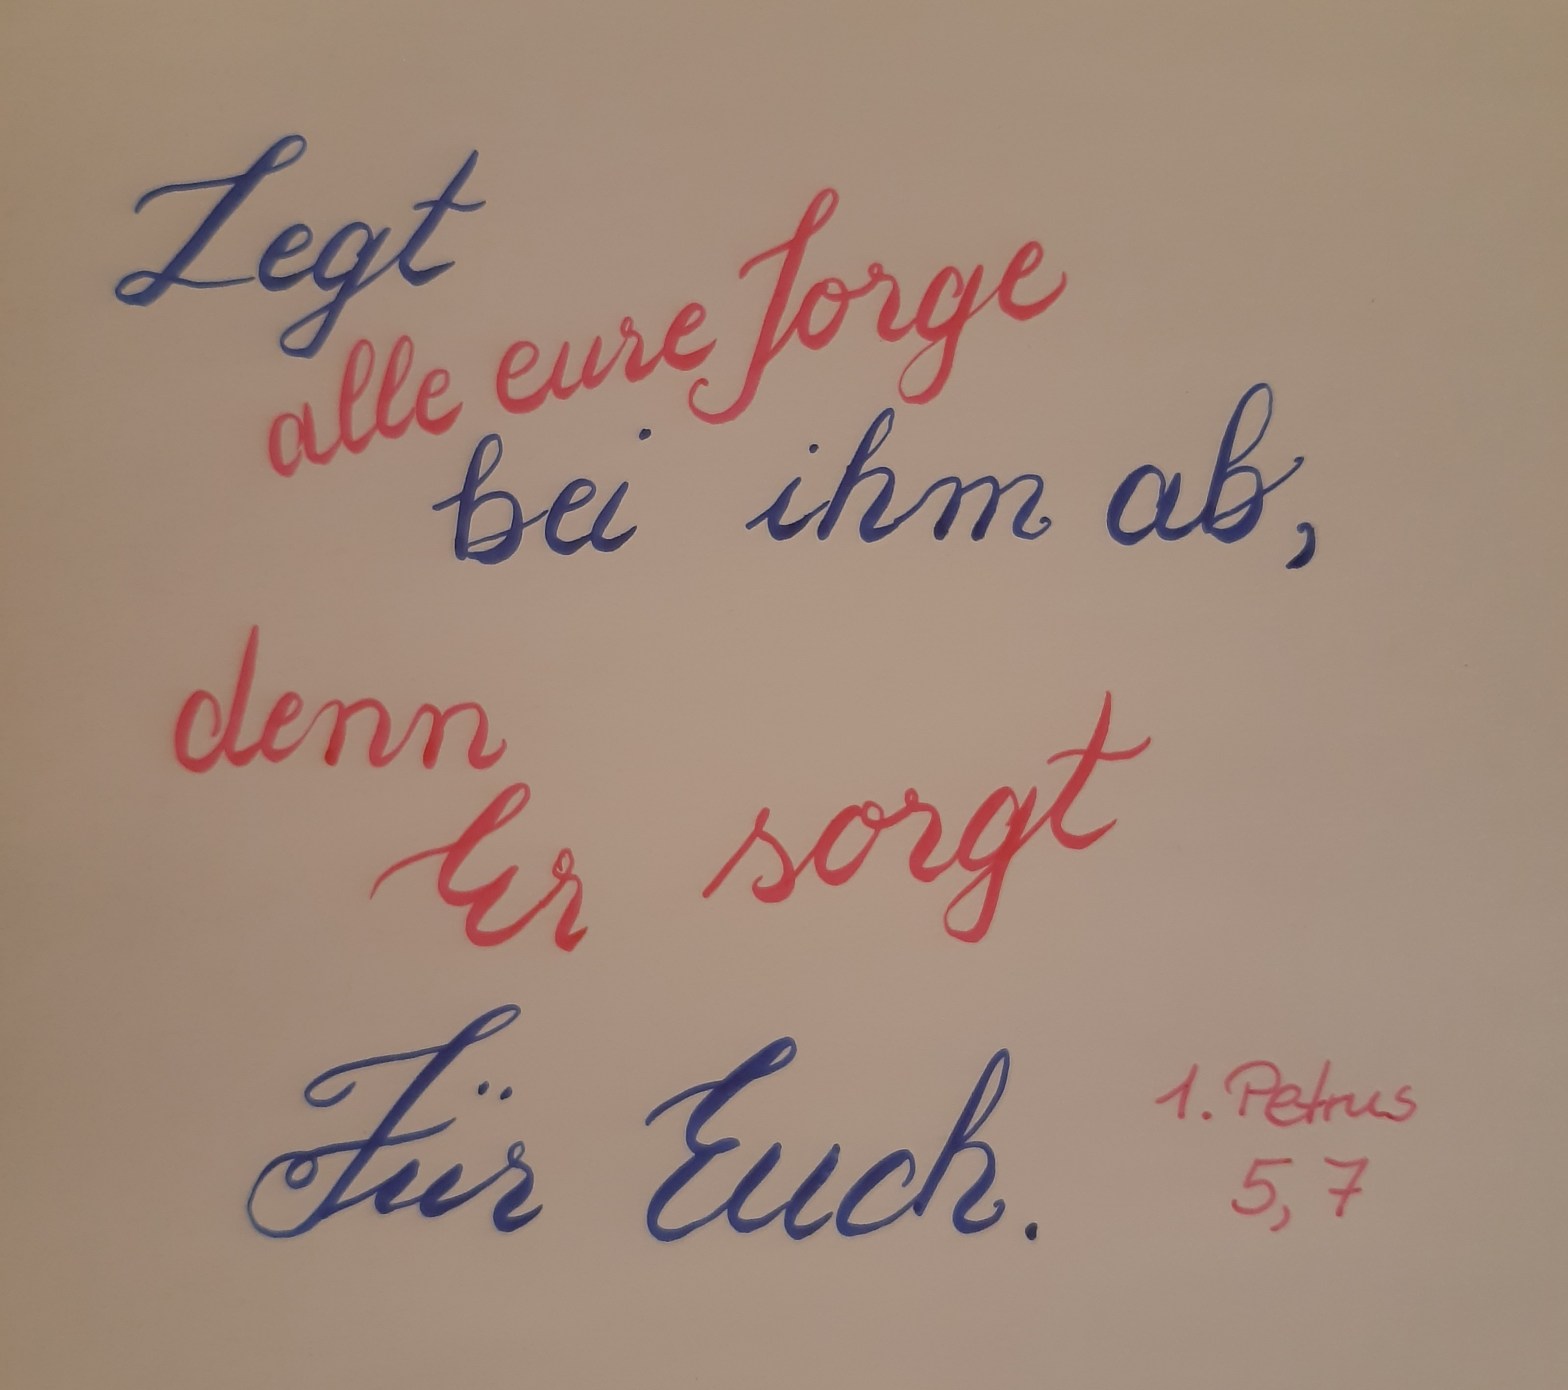 Legt
alle eure Sorge
bei ihm ab,
denn
Er sorgt
Für Euch.
1. Petrus
5,7